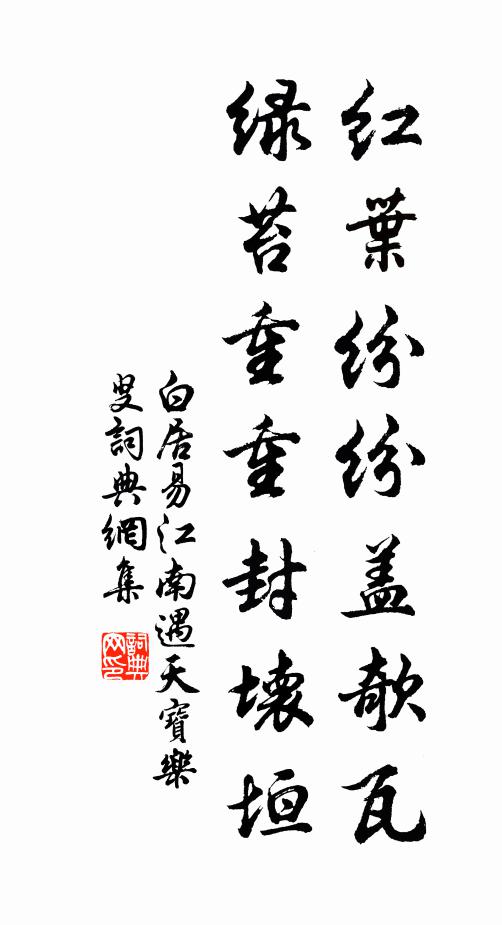 红葉纷纷盖欹瓦
绿苔重重封壞垣
白居易江南遇天寶樂
叟詞典網集
詞典网印